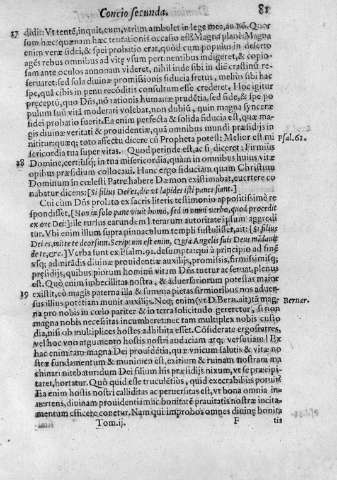 Concio secunda. 81
27 didit: Vt tentē, inquit, eum, vtrùm ambulet in lege mea, an nō. Quor
sum hæc? quænam hac tentationis occasio est? Magna planè. Magna
enim veræ fidei, & spei probatio erat, quòd cum populus in deserto
agēs rebus omnibus ad vitę vsum pertinentibus indigeret, & copio-
sam ante oculos annonam videret, nihil inde sibi in diē crastinū re-
seruaret: sed sola diuinæ promissionis fiducia fretus, melius sibi hac
spe, quā cibis in penu recōditis consultum esse crederet. Hoc igitur
pręcepto, quo Dñs, nō rationis humanæ prudētia, sed fide, & spe po
pulum suū vitā moderari volebat, non dubiū, quin magna synceræ
fidei probatio fuerit. Ea enim perfecta & solida fiducia est, quæ ma-
gis diuinæ veritati & prouidentiæ, quā omnibus mundi præsidijs in
nititur: quæq; toto affectu dicere cū Propheta potest: Melior est mi
sericordia tua super vitas. Quod perinde est, ac si diceret: Firmius Psal. 62.
28 Domine, certiusq́; in tua misericordia, quàm in omnibus humę vitæ
opibus præsidium collocaui. Hanc ergo fiduciam, quam Christum
Dominum in cœlesti Patre habere Dæmon existimabat, euertere co
nabatur dicens: [Si filius Dei es, dic vt lapides isti panes fiant.]
Cui cùm Dñs prolato ex sacris literis testimonio appositissimè re
spondisset, [Non in solo pane viuit homo, sed in omni verbo, quod procedit
ex ore Dei:] ille rursus earundem literarum autoritate ipsum aggredi
tur. Vbi enim illum supra pinnaculum templi sustulisset, ait: [Si filius
Dei es, mitte te deorsum. Scriptum est enim, Quia Angelis suis Deus mādauit
de te, &c.] Verba sunt ex Psalm. 91. desumpta: qui à principio ad finē
vsq; admirādis diuinæ prouidentiæ auxilijs, promissis, firmissimisq́;
pręsidijs, quibus piorum hominū vitam Dñs tuetur ac seruat, plenus
est. Quò enim imbecillior nostra, & aduersariorum potestas maior
39 existit, eò magis paterna illa & summa pietas firmioribus nos aduer-
sus illius potētiam munit auxilijs. Neq; enim (vt D. Bern. ait) tā mag- Bernar.
na pro nobis in cœlo pariter & in terra solicitudo gereretur, si non
magna nobis necessitas incumberet: nec tam multiplex nobis custo
dia, nisi ob multiplices hostes adhibita esset. Cōsiderate ergo fratres,
vel hoc vno argumento hostis nostri audaciam atq; versutiam! Ex
hac enim tam magna Dei prouidētia, quæ vnicum salutis & vitæ no
stræ fundamentum & munimen est, exitium & ruinam nostram ma
chinari nitebatur: dum Dei filium his præsidijs nixum, vt se præcipi-
taret, hortatur. Quò quid esse truculētius, quid execrabilius potuit?
Ea enim hostis nostri calliditas ac peruersitas est, vt bona omnia in-
uertens, diuinam prouidentiam & bonitatē prauitatis nostræ incita-
mentum efficere conetur. Nam qui improbos omnes diuina bonita
Tom. ij. F tis